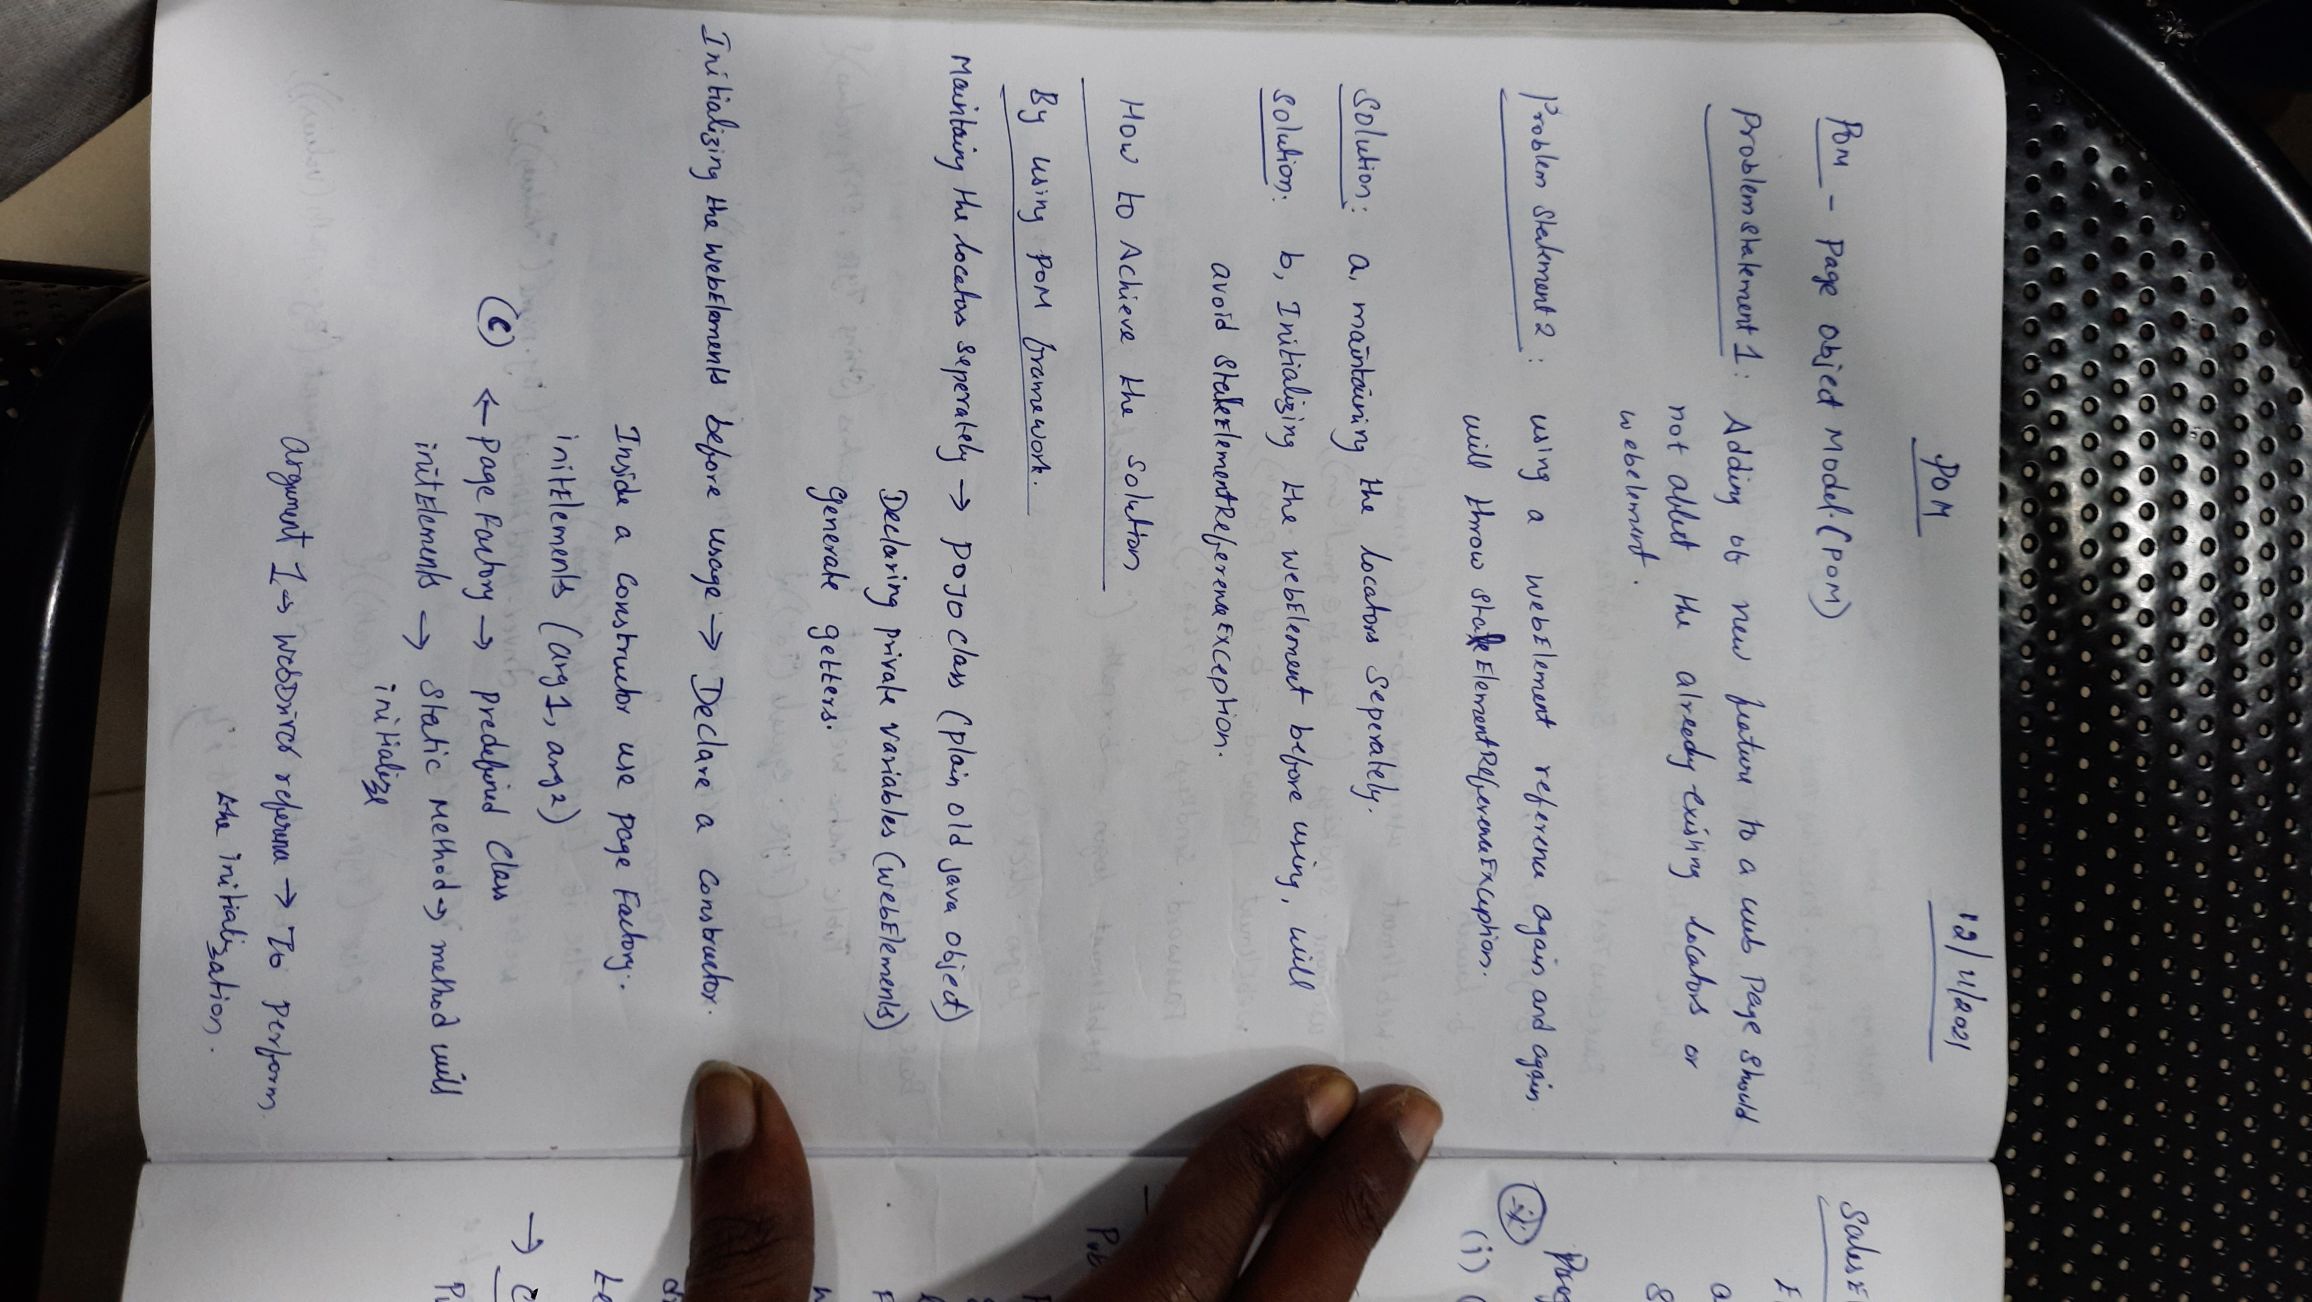 12/11/2021
POM
POM - Page Object Model. (POM)
Problem statement 1: Adding of new feature to a web Page should
not affect the already existing locators or
webelement.
Problem Statement 2: using a webElement reference again and again
will throw StaleElementReferenceException.
Solution: a, maintaining the locators seperately.
Solution: b, Initializing the webElement before using, will
avoid StaleElementReferenceException.
How to Achieve the Solution
By using POM framework.
Maintaing the locators seperately → POJO class (plain old java object)
Declaring private variables (webElements)
generate getters.
Initializing the webElements before usage → Declare a constructor.
Inside a constructor use page Factory.
initElements (arg1, arg2)
(C) ← page Factory → predefined class
initElements → static Method → method will
initialize
argument 1 → WebDriver reference → To perform
the initialization.
(i)